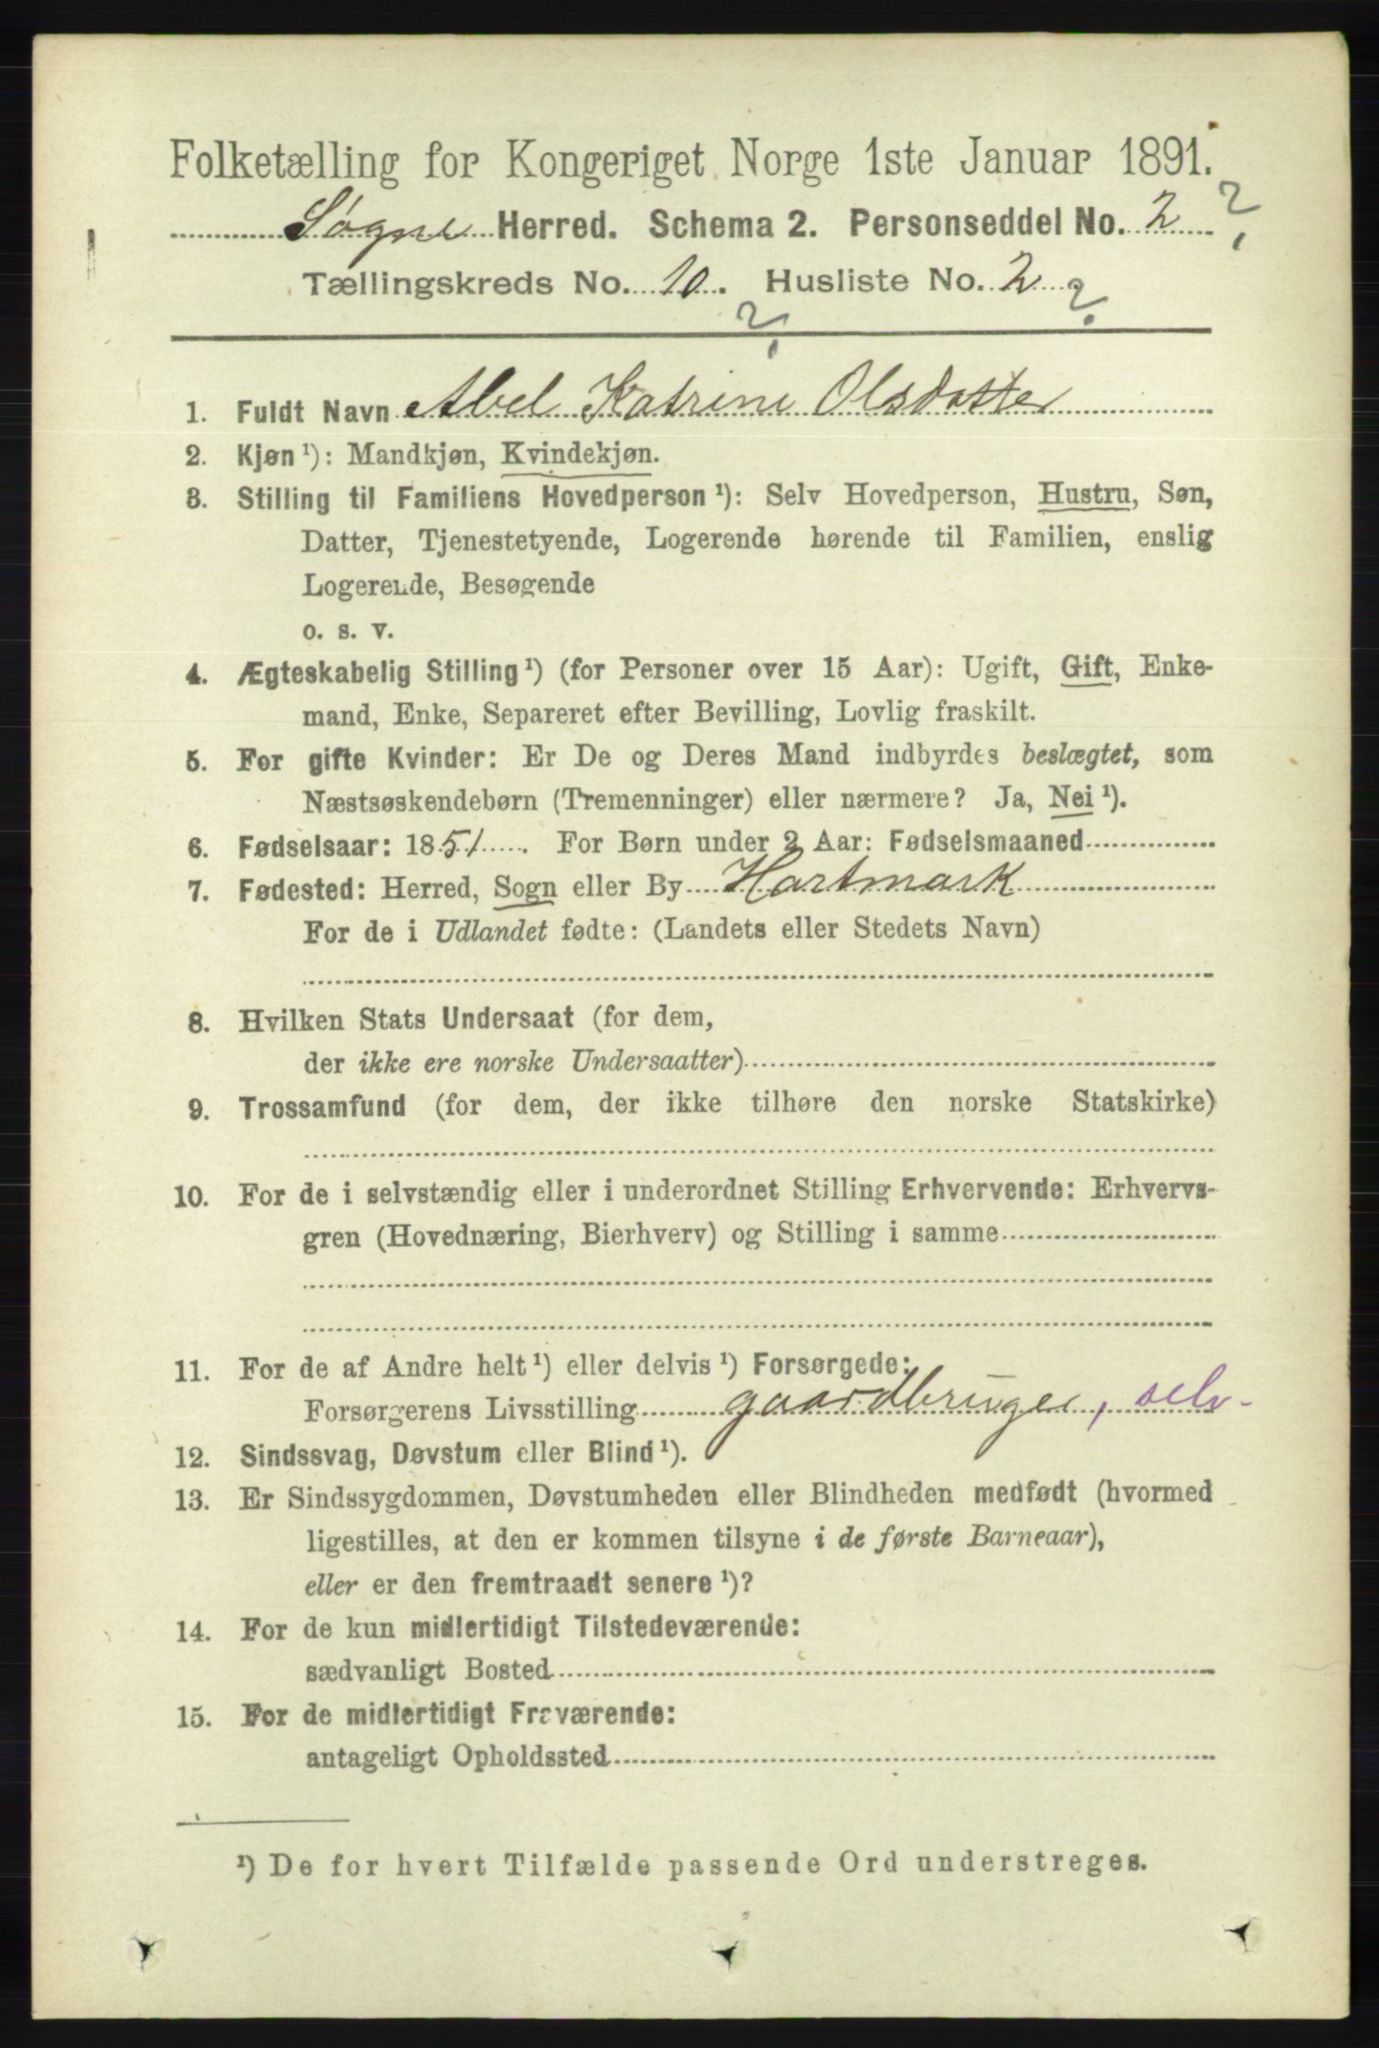 Folketælling for Kongeriget Norge 1ste Januar 1891.
Søgne Herred. Schema 2. Personseddel No. 2 ?
Tællingskreds No. 10. Husliste No. 2 ?
?
1. Fuldt Navn Abel Katrine Olsdatter
2. Kjøn ¹): Mandkjøn, Kvindekjøn.
3. Stilling til Familiens Hovedperson ¹): Selv Hovedperson, Hustru, Søn,
Datter, Tjenestetyende, Logerende hørende til Familien, enslig
Logerende, Besøgende
o. s. v.
4. Ægteskabelig Stilling ¹) (for Personer over 15 Aar): Ugift, Gift, Enke-
mand, Enke, Separeret efter Bevilling, Lovlig fraskilt.
5. For gifte Kvinder: Er De og Deres Mand indbyrdes beslægtet, som
Næstsøskendebørn (Tremenninger) eller nærmere? Ja, Nei ¹).
6. Fødselsaar: 1851. For Børn under 2 Aar: Fødselsmaaned
7. Fødested: Herred, Sogn eller By Hartmark
For de i Udlandet fødte: (Landets eller Stedets Navn)
8. Hvilken Stats Undersaat (for dem,
der ikke ere norske Undersaatter)
9. Trossamfund (for dem, der ikke tilhøre den norske Statskirke)
10. For de i selvstændig eller i underordnet Stilling Erhvervende: Erhvervs-
gren (Hovednæring, Bierhverv) og Stilling i samme
11. For de af Andre helt ¹) eller delvis ¹) Forsørgede:
Forsørgerens Livsstilling gaardbruger, selv-
12. Sindssvag, Døvstum eller Blind ¹).
13. Er Sindssygdommen, Døvstumheden eller Blindheden medfødt (hvormed
ligestilles, at den er kommen tilsyne i de første Barneaar),
eller er den fremtraadt senere ¹)?
14. For de kun midlertidigt Tilstedeværende:
sædvanligt Bosted
15. For de midlertidigt Fraværende:
antageligt Opholdssted
¹) De for hvert Tilfælde passende Ord understreges.